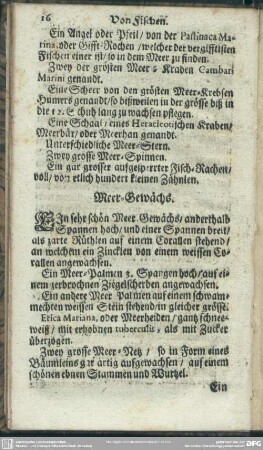 16 Von Fischen.
Ein Angel oder Pfeil / von der Pastinaca Ma-
rina, oder Gifft-Rochen / welcher der vergifftisten
Fischen einer ist / so in dem Meer zu finden.
Zwey der grösten Meer-Kraben Cambari
Marini genandt.
Eine Scheer von den grösten Meer-Krebsen
Humers genandt / so bißweilen in der grösse biß in
die Schuh lang zu wachsen pflegen.
Ein Schaal / eines Heracleotischen Kraben /
Meerbär / oder Meerhan genandt.
Unterschiedliche Meer-Stern.
Zwey grosse Meer-Spinnen.
Ein gar grosser auffgesperrter Fisch-Rachen /
voll / von etlich hundert kleinen Zähnlen.
Meer-Gewächs.
EIn sehr schön Meer-Gewächs / anderthalb
Spannen hoch / und einer Spannen breit /
als zarte Rüthlen auf einem Corallen stehend /
an welchem ein Zincklen von einem weissen Co-
rallen angewachsen.
Ein Meer-Palmen 3. Spangen hoch / auf ei-
nem zerbrochnen Ziegelscherben angewachsen.
Ein andere Meer Palmen auf einem schwam-
mechten weissen Stein stehend / in gleicher grösse.
Erica Mariana, oder Meerheiden / gantz schnee-
weiß / mit erhobnen tuberculis, als mit Zucker
überzogen.
Zwey grosse Meer-Netz / so in Form eines
Bäumleins gar artig aufgewachsen / auf einem
schönen ebnen Stammen und Wurtzel.
Ein